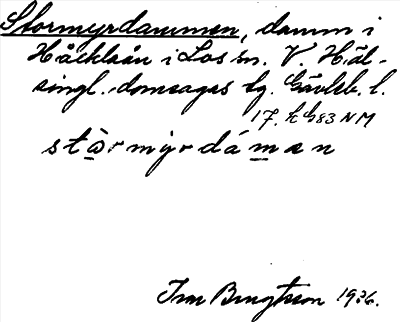 Stormyrdammen, damm i
Häcklaån i Los sn. V. Häl-
singl. domsagas tg. Gävleb. l.
17. h G83 NM
stò̱rmyrdám̱en
Ivar Bengtsson 1926.